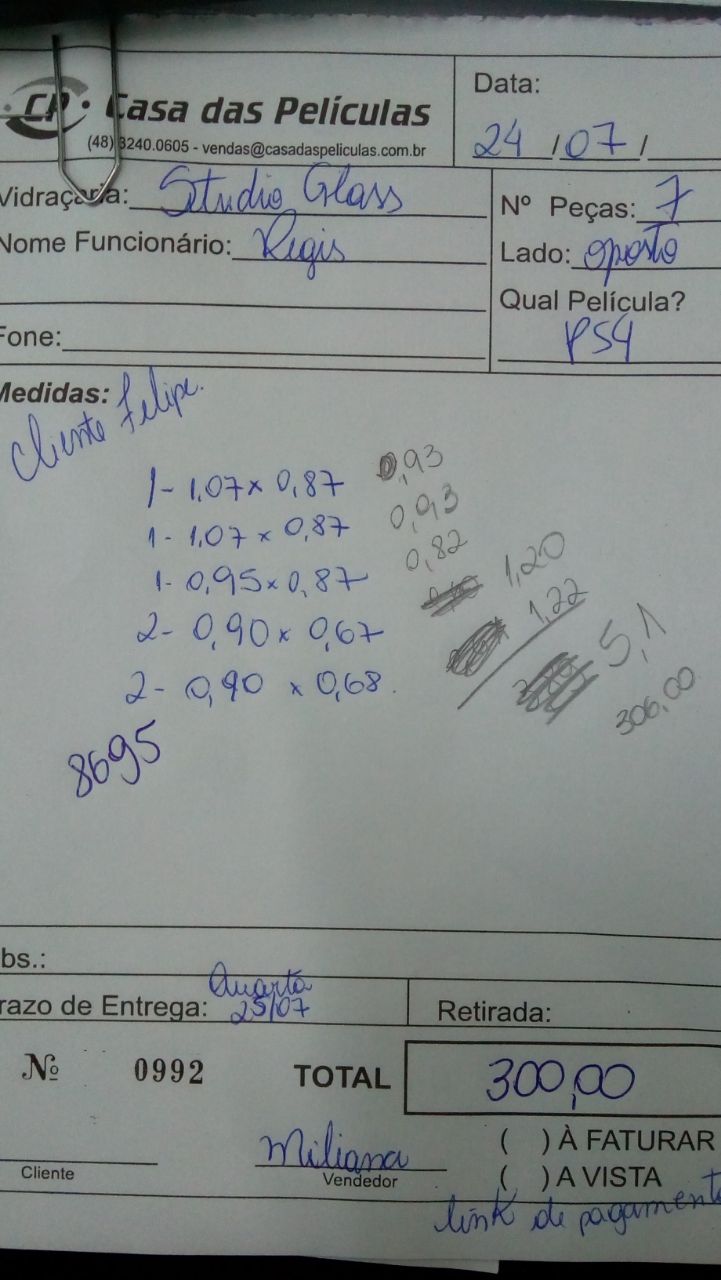 CP Casa das Películas
(48) 3240.0605 - vendas@casadaspeliculas.com.br
Data:
24/07/
Vidraçaria: Studio Glass
Nome Funcionário: Regis
Fone:
Nº Peças: 7
Lado: oposto
Qual Película?
PS4
Medidas:
Cliente Felipe.
1- 1,07 x 0,87 0,93
1- 1,07 x 0,87 0,93
1- 0,95 x 0,87 0,82
2- 0,90 x 0,67 1,20
2- 0,90 x 0,68. 1,22
5,1
306,00
8695
bs.:
razo de Entrega: Quarta 25/07
Retirada:
Nº 0992
TOTAL 300,00
Cliente
Miliana
Vendedor
( ) À FATURAR
( ) A VISTA
link de pagamento